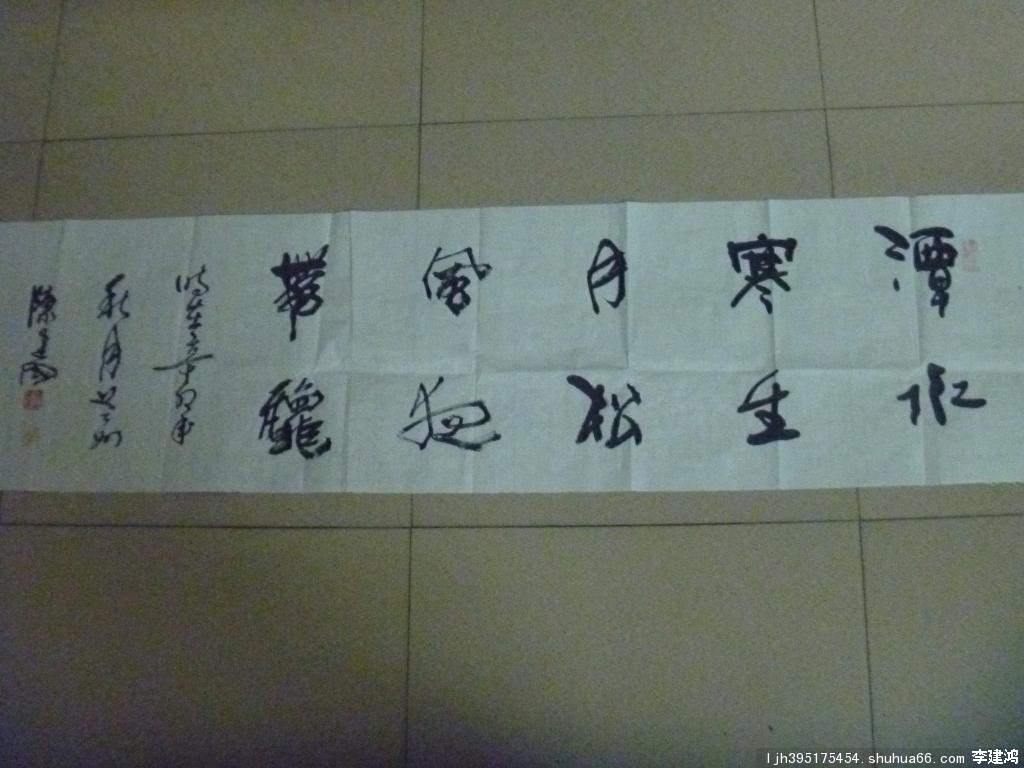 潭
寒生
月松
風夜
帶龝
時在辛卯年
秋月
陳建國
ljh395175454.shuhua66.com 李建鸿